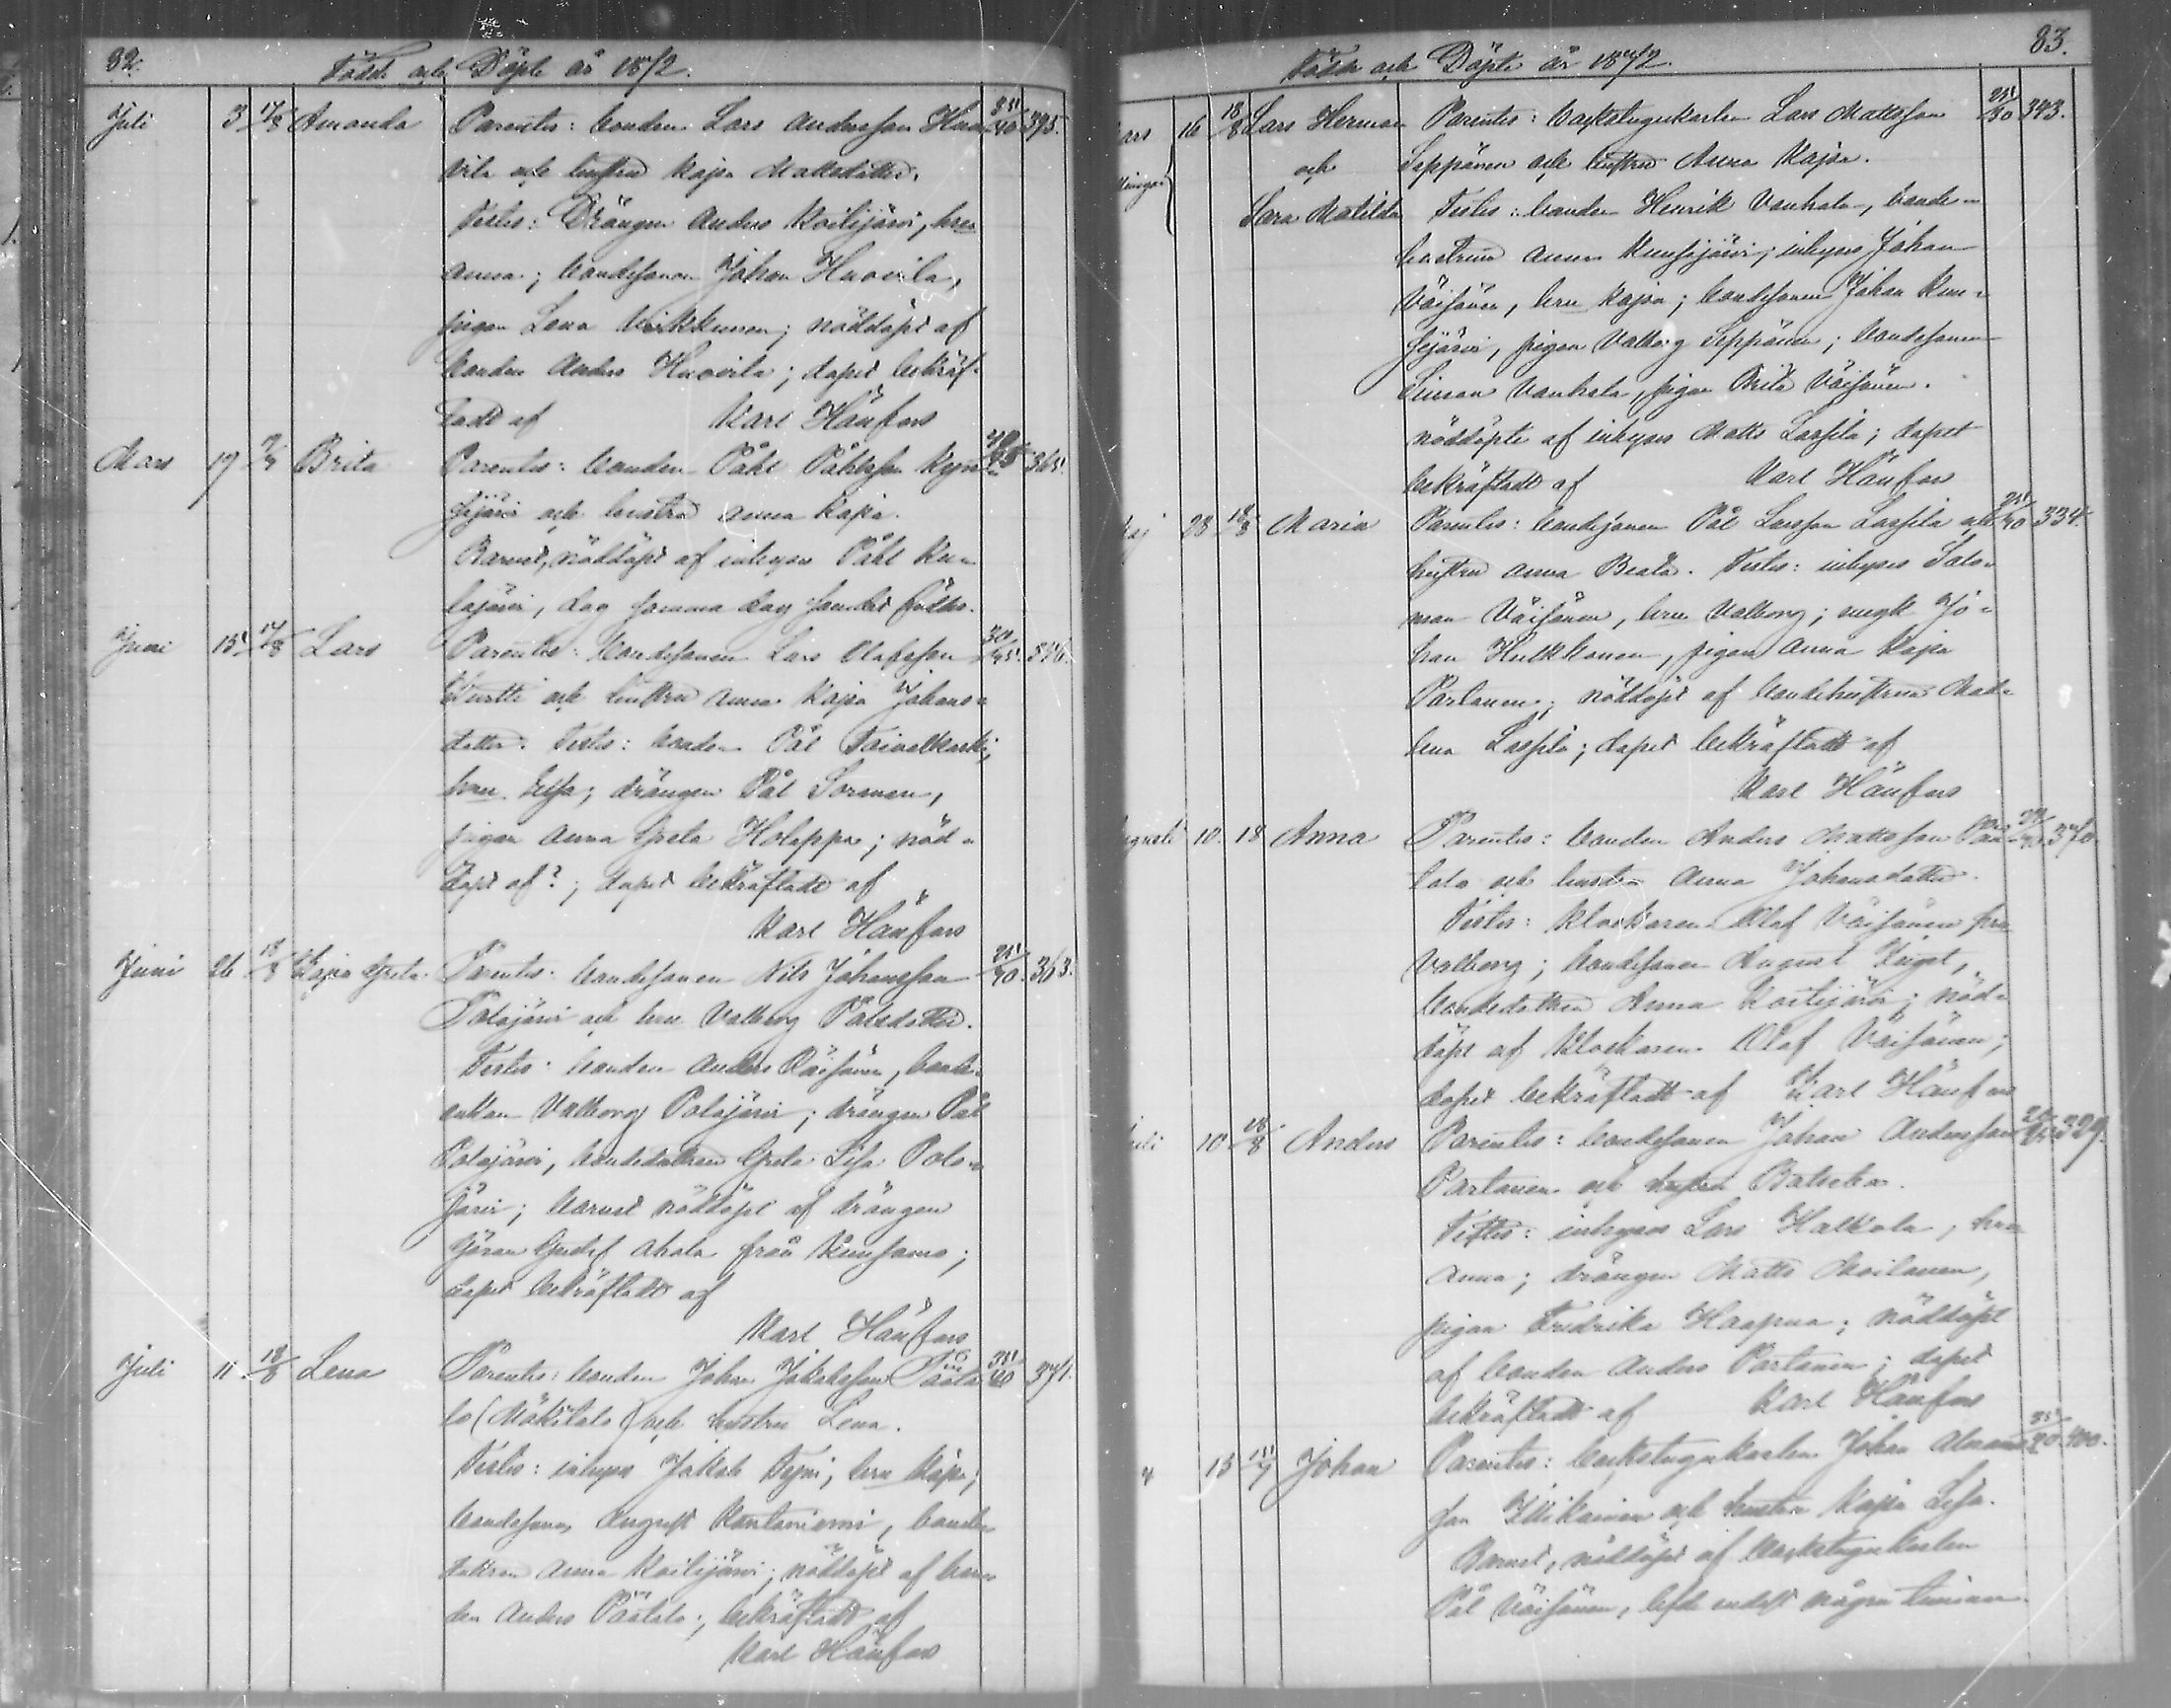 82.
Födde och Döpte år 1872.
Juli 3 17/8 Amanda Parentes: bonden Lars Andersson Huo- 35/40 395.
vila och hustru Kajsa Mattsdotter.
Testes: Drängen Anders Koilijärvi, hru
Anna; bondesonen Johan Huovila,
pigan Lena Heikkinen; nöddöpt af
bonden Anders Huovila; dopet bekräf-
tadt af Karl Hänfors
Mars 17 Brita Parentes: bonden Påhl Påhlsson 365.
järvi och hustru Anna Kajsa.
Barnet, nöddöpt af inhyses Påhl Ku-
lajärvi, dog samma dag som det föddes.
Juni 15 17/8 Lars Parentes: bondesonen Lars Olofsson 30/35
och hustru Anna Kajsa Johans-
dotter. Testes: bonden Pål Taivalkoski,
hru Lisa; drängen Pål Sormunen,
pigan Anna Greta Holappa; nöd-
döpt af?; dopet bekräftadt af
Karl Hänfors
Juni 26 18/8 Kajsa Greta. Parentes: bondesonen Nils Johansson 25/30. 363.
Polojärvi och hru Valborg Pålsdotter.
Testes: bonden Anders Räisänen, bond-
enkan Valborg Polojärvi; drängen Pål
Polojärvi, bondedottren Greta Lisa Polo-
järvi; barnet nöddöpt af drängen
Göran Gustaf Ahola från Kuusamo;
dopet bekräftadt af
Karl Hänfors
Juli 11 18/8 Lena Parentes: bonden Johan Jakobsson Pääta- 35/40 371.
lo (Mökilalo) och hustru Lena.
Testes: inhyses Jakob Tyni, hru Kajsa;
bondesonen August Kantoniemi, bonde-
dottren Anna Koilijärvi; nöddöpt af bon-
den Anders Päätalo; bekräftadt af
Karl Hänfors
83.
Födde och Döpte år 1872.
ars 16 18/8 Lars Herman Parentes: backstugukarlen Lars Mattsson 25/30 343.
och Seppänen och hustru Anna Kajsa.
Sara Matilda Testes: bonden Henrik Vanhala, bonde-
hustrun Anna; inhyses Johan
Väisänen, hru Kajsa; bondesonen Johan
järvi, pigan Valborg Seppänen; bondesonen
Simon Vanhala, pigan Brita Väisänen.
nöddöpte af inhyses Matts Lassila; dopet
bekräftadt af Karl Hänfors
aj 28 18/8 Maria Parentes: bondesonen Pål Larsson Lassila och 25/30 334.
hustru Anna Beata. Testes: inhyses Salo-
mon Väisänen, hru Valborg; ungk Jo-
han Hulkkonen, pigan Anna Kajsa
Partanen; nöddöpt af bondehustrun Mad-
lena Lassila; dopet bekräftadt af
Karl Hänfors
ugusti 10. 18 Anna Parentes: bonden Anders Mattsson Pää- 370.
talo och hustru Anna Johansdotter.
Testes: Klockaren Olof Väisänen hru
Valborg; bondesonen August Engel,
bondedottren Anna Koilijärvi; nöd-
döpt af Klockaren Olof Väisänen;
dopet bekräftadt af Karl Hänfors
uli 10. 18/8 Anders Parentes: bondesonen Johan Andersson 329.
Partanen och hustru Batseba.
Testes: inhyses Lars Halkola, hru
Anna; drängen Matts Moilanen,
pigan Fredrika Haapua; nöddöpt
af bonden Anders Partanen; dopet
bekräftadt af Karl Hänfors
13 Johan Parentes: backstugukarlen Johan 400.
son Illikainen och hustru Kajsa Lisa.
Barnet, nöddöpt af backstugukarlen
Pål Väisänen, lefde endast några timmar.